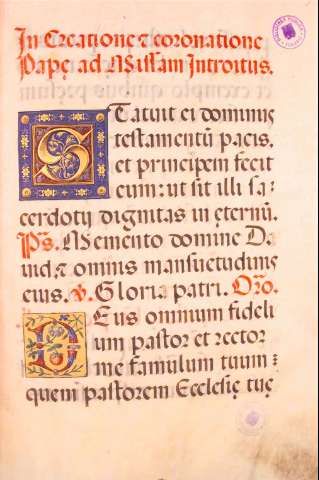 In Creatione ⁊ coronatione
Papę ad Missam Introitus.
Statuit ei dominus
testamentū pacis,
et principem fecit
eum: ut sit illi sa⸗
cerdotij dignitas in ęternū.
Ps. Memento domine Da
uid, ⁊ omnis mansuetudinis
eius. ℣. Gloria patri. Orō.
Deus omnium fideli
um pastor et rector
me famulum tuum:
quem pastorem Ecclesię tuę